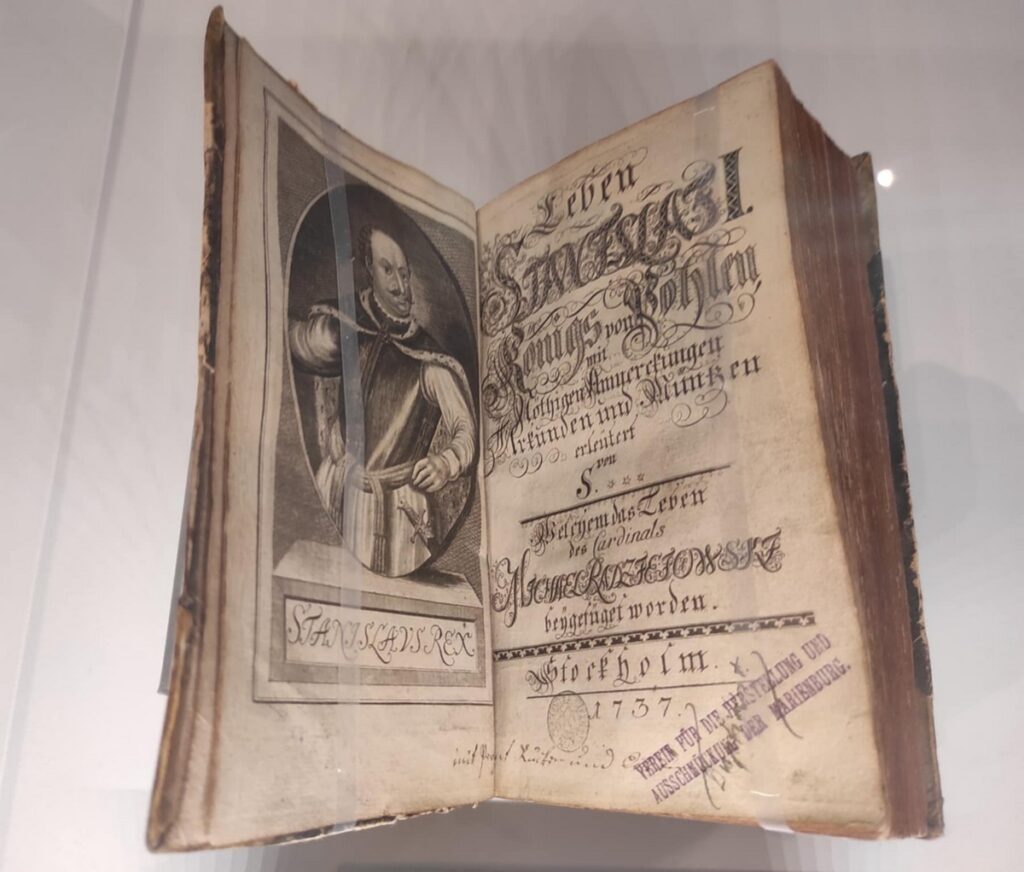 STANISLAVS REX
Leben
STANISLAI I.
Königs von Pohlen,
mit
Nöthigen Anmerckungen
Urkunden und Müntzen
erleutert
von
S. * * *
Welchem das Leben
des Cardinals
MICHAEL RADZIEJOWSKI
beygefüget worden.
Stockholm.
1737.
VEREIN FÜR DIE HERSTELLUNG UND
AUSSCHMÜCKUNG DER MARIENBURG.
mit und